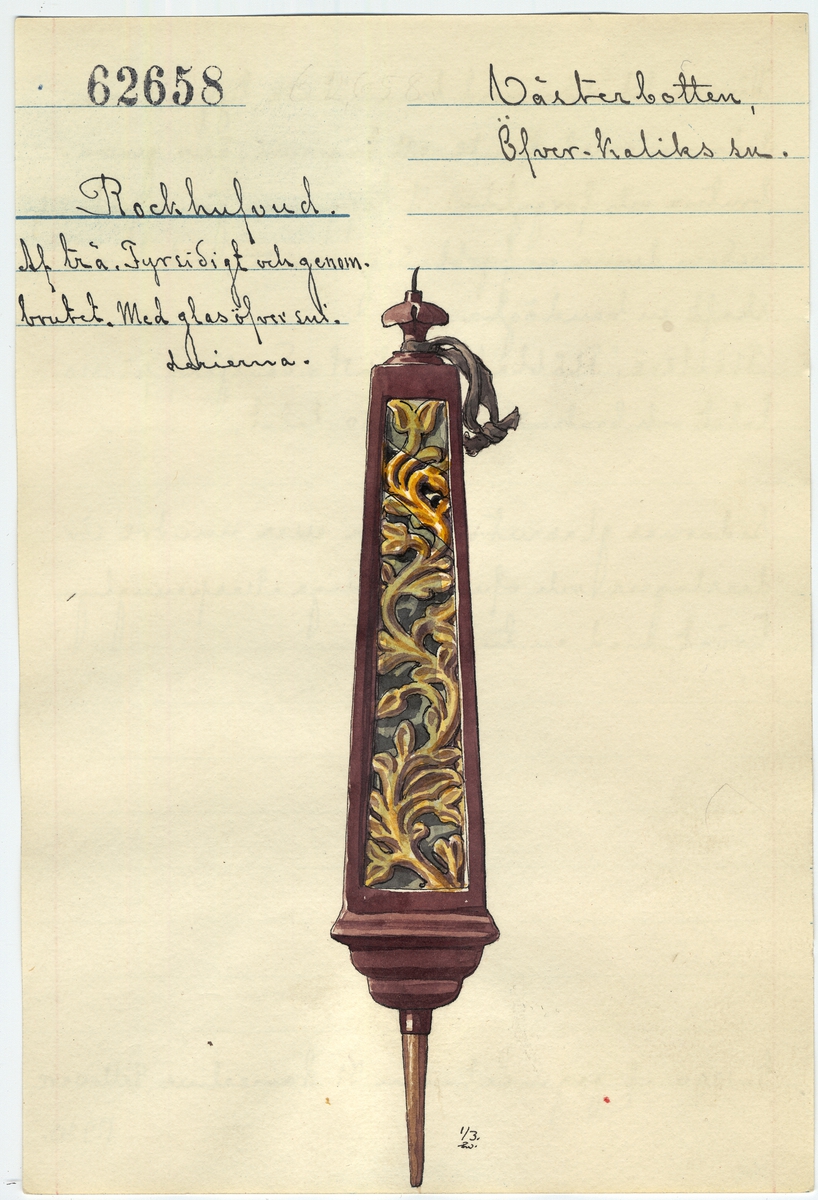 62658
Västerbotten,
Öfver-Kaliks sn.
Rockhufvud.
Af trä. Fyrsidigt och genom-
brutet. Med glas öfver sni-
derierna.
1/3.